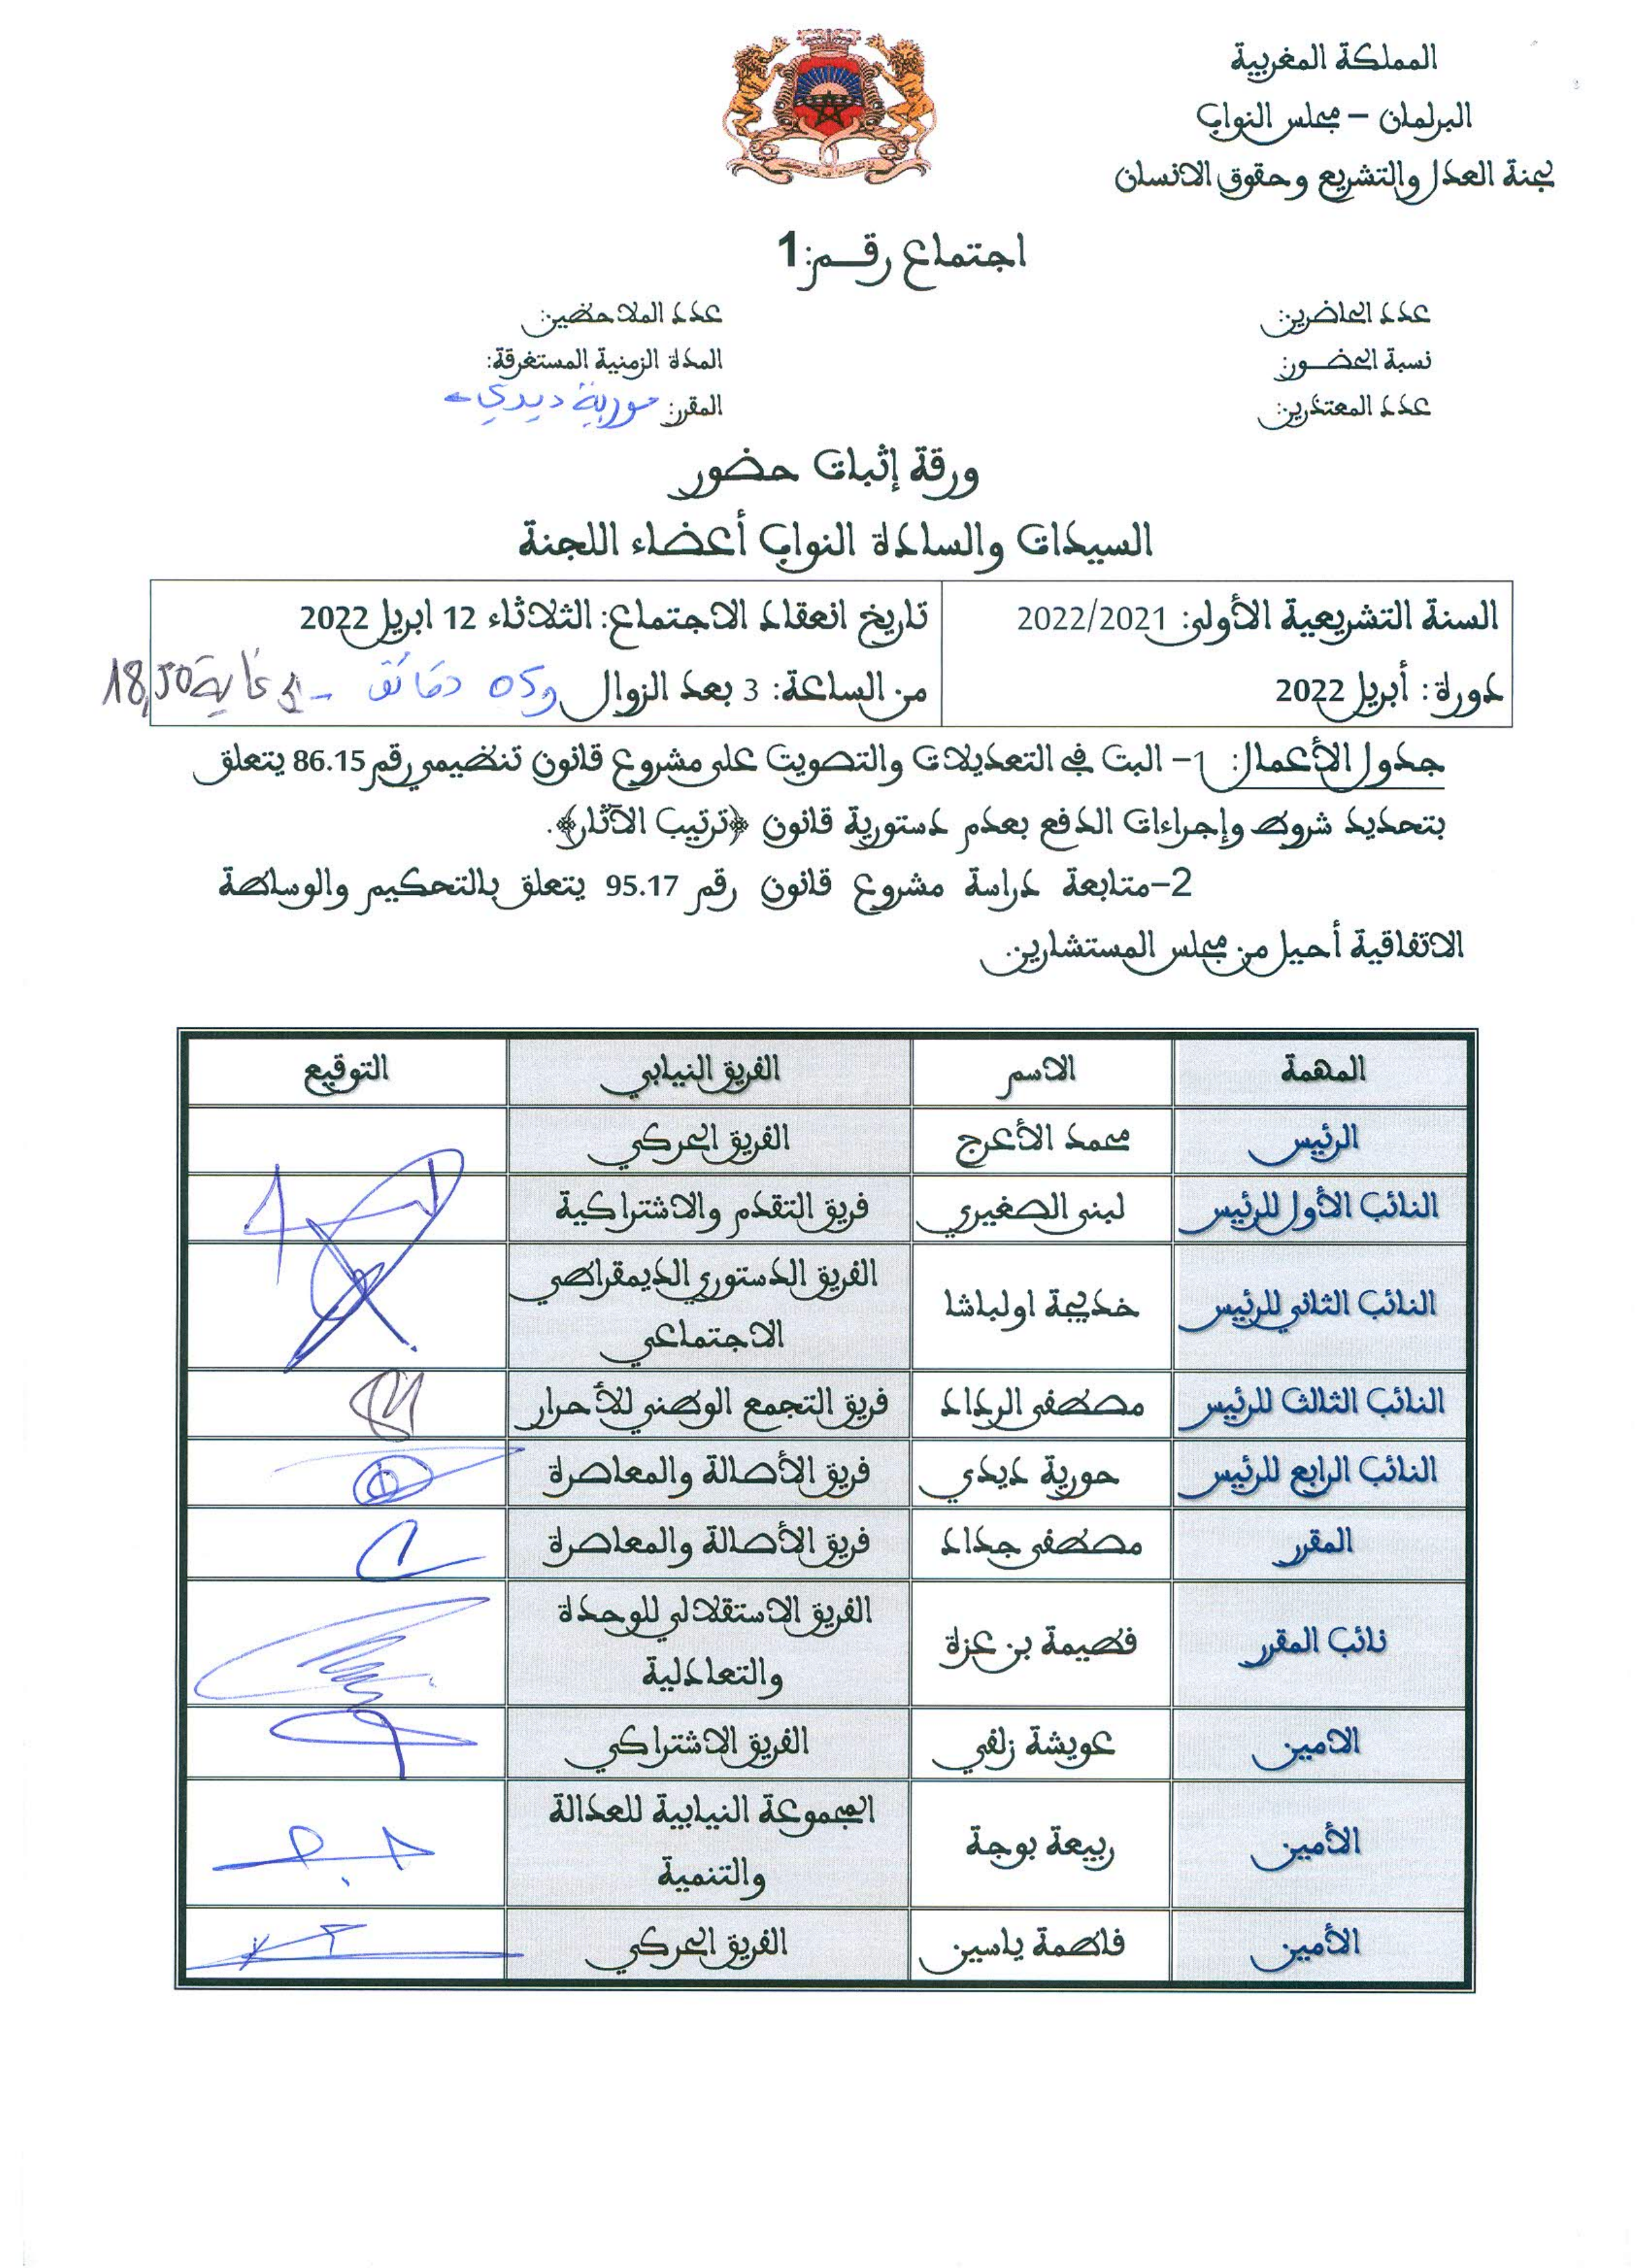 المملكة المغربية
البرلمان – مجلس النواب
لجنة العدل والتشريع وحقوق الانسان
اجتماع رقم:1
عدد الحاضرين:
عدد الملاحظين:
نسبة الحضور:
المدة الزمنية المستغرقة:
عدد المعتذرين:
المقرر: حورية ديدي
ورقة إثبات حضور
السيدات والسادة النواب أعضاء اللجنة
السنة التشريعية الأولى: 2022/2021
تاريخ انعقاد الاجتماع: الثلاثاء 12 ابريل 2022
دورة: أبريل 2022
من الساعة: 3 بعد الزوال و05 دقائق – إلى غاية 18,50
جدول الأعمال: 1– البت في التعديلات والتصويت على مشروع قانون تنظيمي رقم 86.15 يتعلق
بتحديد شروط وإجراءات الدفع بعدم دستورية قانون ﴿ترتيب الآثار﴾.
2–متابعة دراسة مشروع قانون رقم 95.17 يتعلق بالتحكيم والوساطة
الاتفاقية أحيل من مجلس المستشارين.
المهمة الاسم الفريق النيابي التوقيع
الرئيس محمد الأعرج الفريق الحركي
النائب الأول للرئيس لبنى الصغيري فريق التقدم والاشتراكية
النائب الثاني للرئيس خديجة اولباشا الفريق الدستوري الديمقراطي
الاجتماعي
النائب الثالث للرئيس مصطفى الرداد فريق التجمع الوطني للأحرار
النائب الرابع للرئيس حورية ديدي فريق الأصالة والمعاصرة
المقرر مصطفى جداد فريق الأصالة والمعاصرة
نائب المقرر فطيمة بن عزة الفريق الاستقلالي للوحدة
والتعادلية
الامين عويشة زلفي الفريق الاشتراكي
الأمين ربيعة بوجة المجموعة النيابية للعدالة
والتنمية
الأمين فاطمة ياسين الفريق الحركي